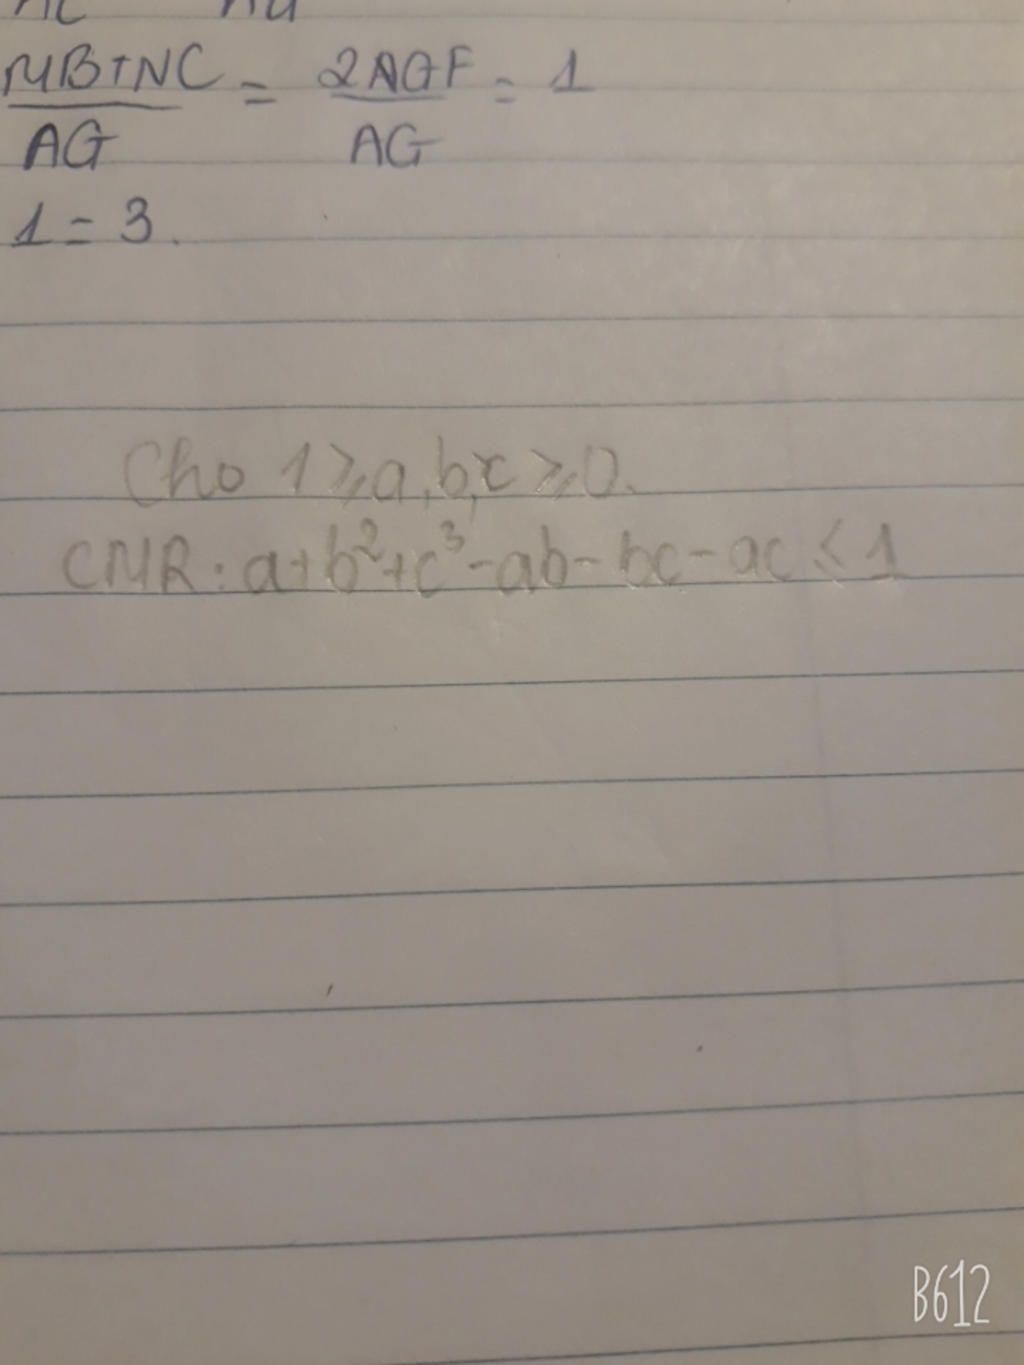 MB+NC = 2AGF = 1
AG AG
1 = 3.
Cho 1 ≥ a, b, c ≥ 0.
CMR: a+b²+c³-ab-bc-ac ≤ 1
B612